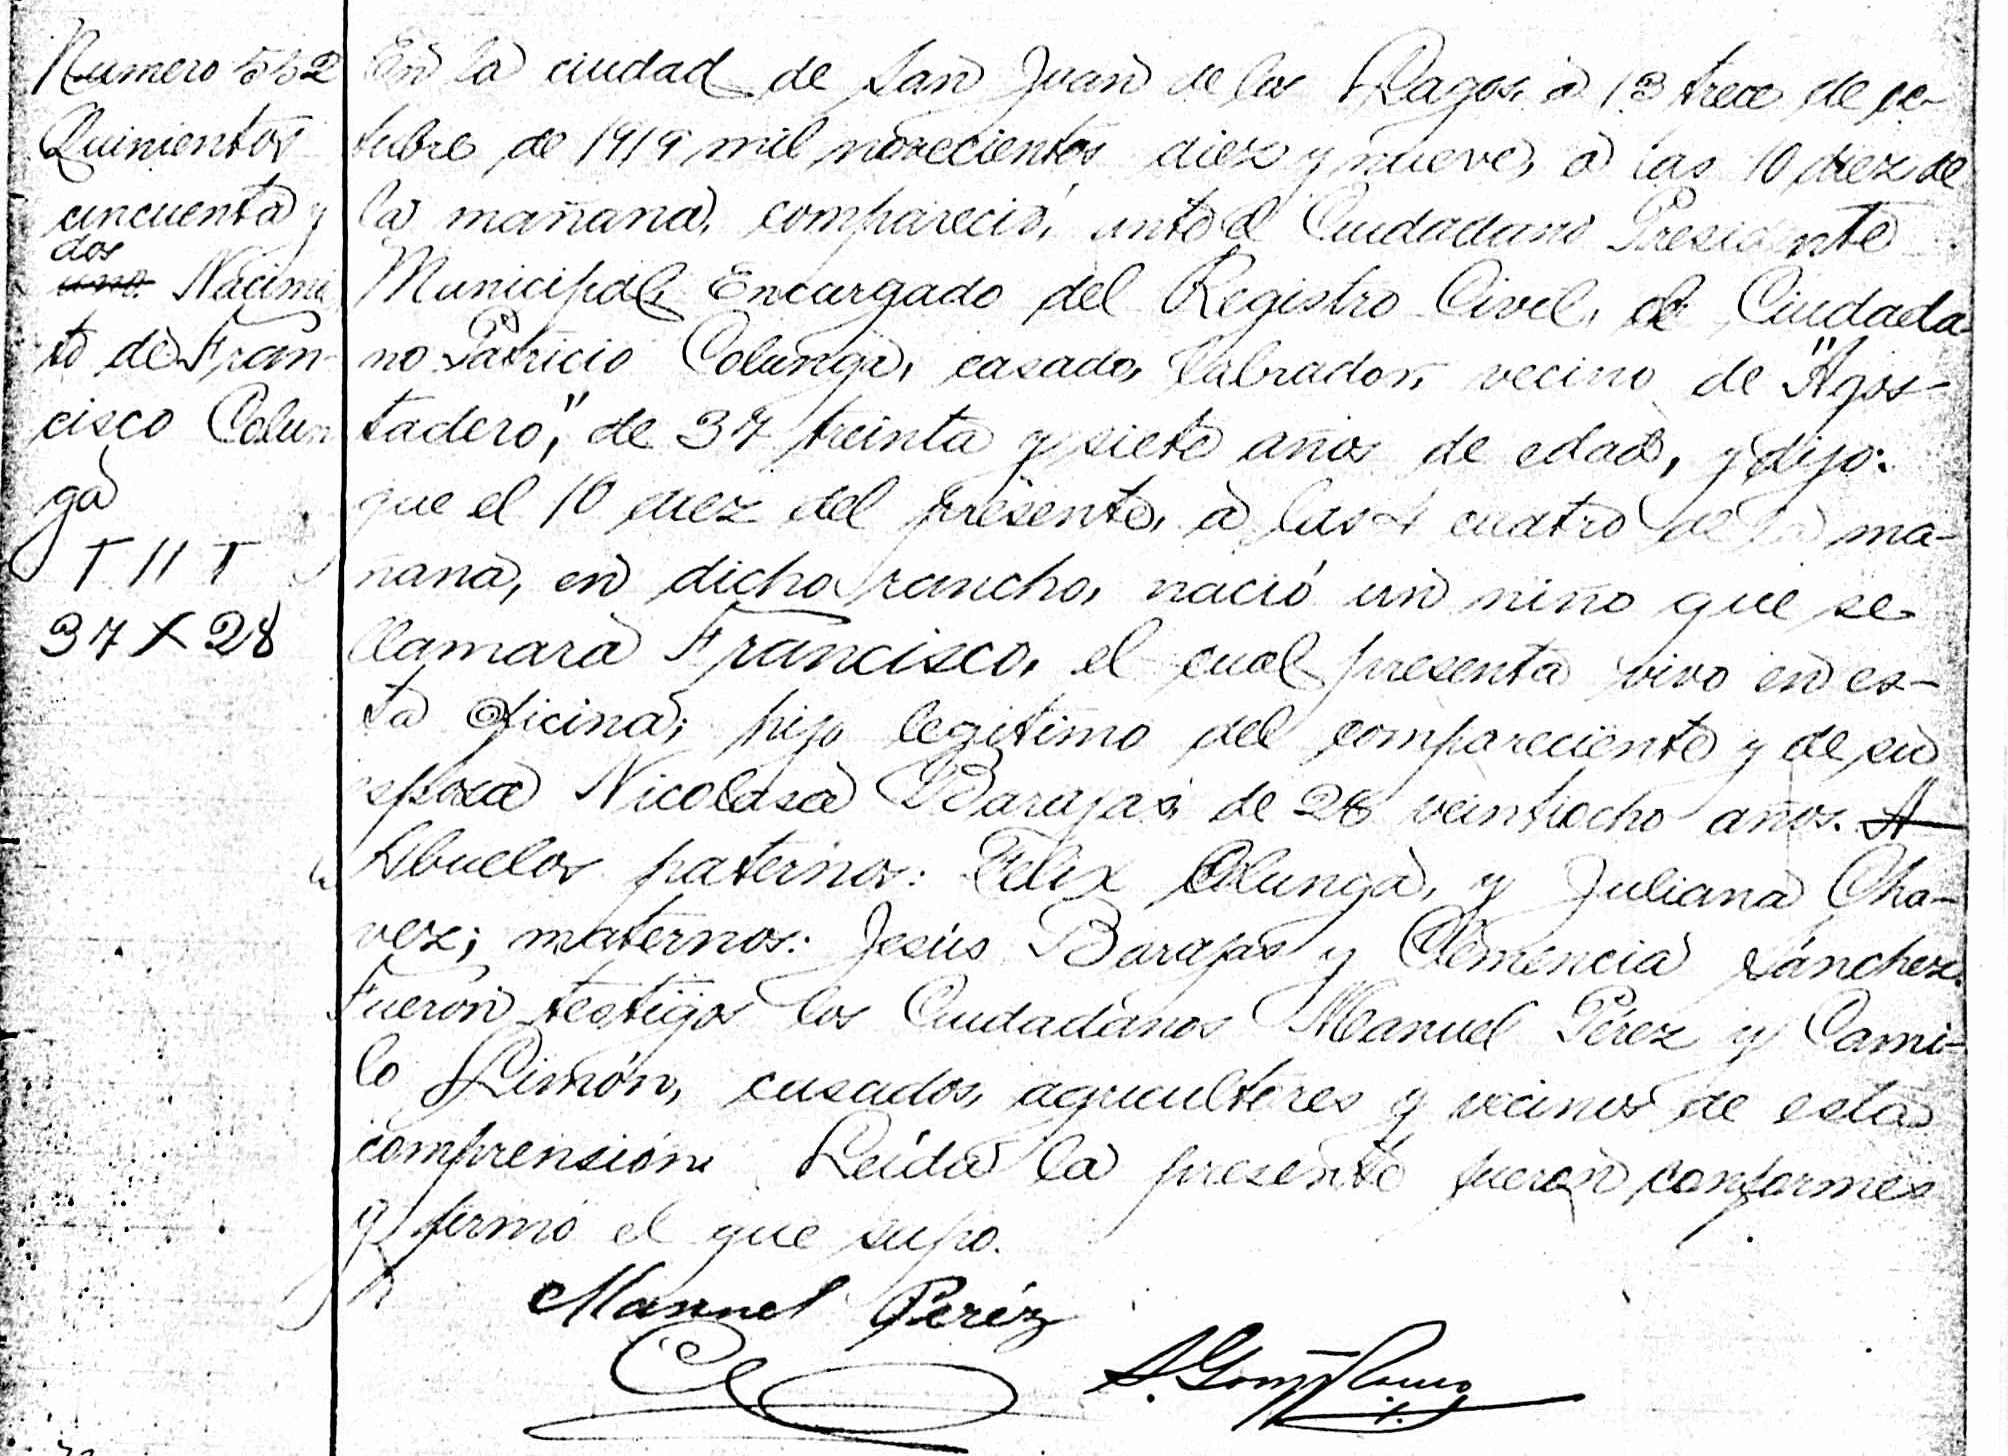 Numero 552
Quinientos
cincuenta y
dos
uno Nacimi
to de Fran-
cisco Colun
ga
T II T
37 X 28
En la ciudad de San Juan de los Lagos, a 13 trece de oc-
tubre de 1919 mil novecientos diez y nueve, a las 10 diez de
la mañana, compareció, ante el Ciudadano Presidente
Municipal, Encargado del Registro Civil, el Ciudada-
no Patricio Colunga, casado, labrador, vecino de "Agos-
tadero," de 37 treinta y siete años de edad, y dijo:
que el 10 diez del presente, a las 4 cuatro de la ma-
ñana, en dicho rancho, nació un niño que se
llamará Francisco, el cual presenta vivo en es-
ta oficina; hijo legítimo del compareciente y de su
esposa Nicolasa Barajas, de 28 veintiocho años. A
Abuelos paternos: Felix Colunga, y Juliana Cha-
vez; maternos: Jesús Barajas y Clemencia Sánchez.
Fueron testigos los Ciudadanos Manuel Pérez y Cami-
lo Limón, casados, agricultores y vecinos de esta
comprensión. Leída la presente fueron conformes
y firmó el que supo.
Manuel Peréz